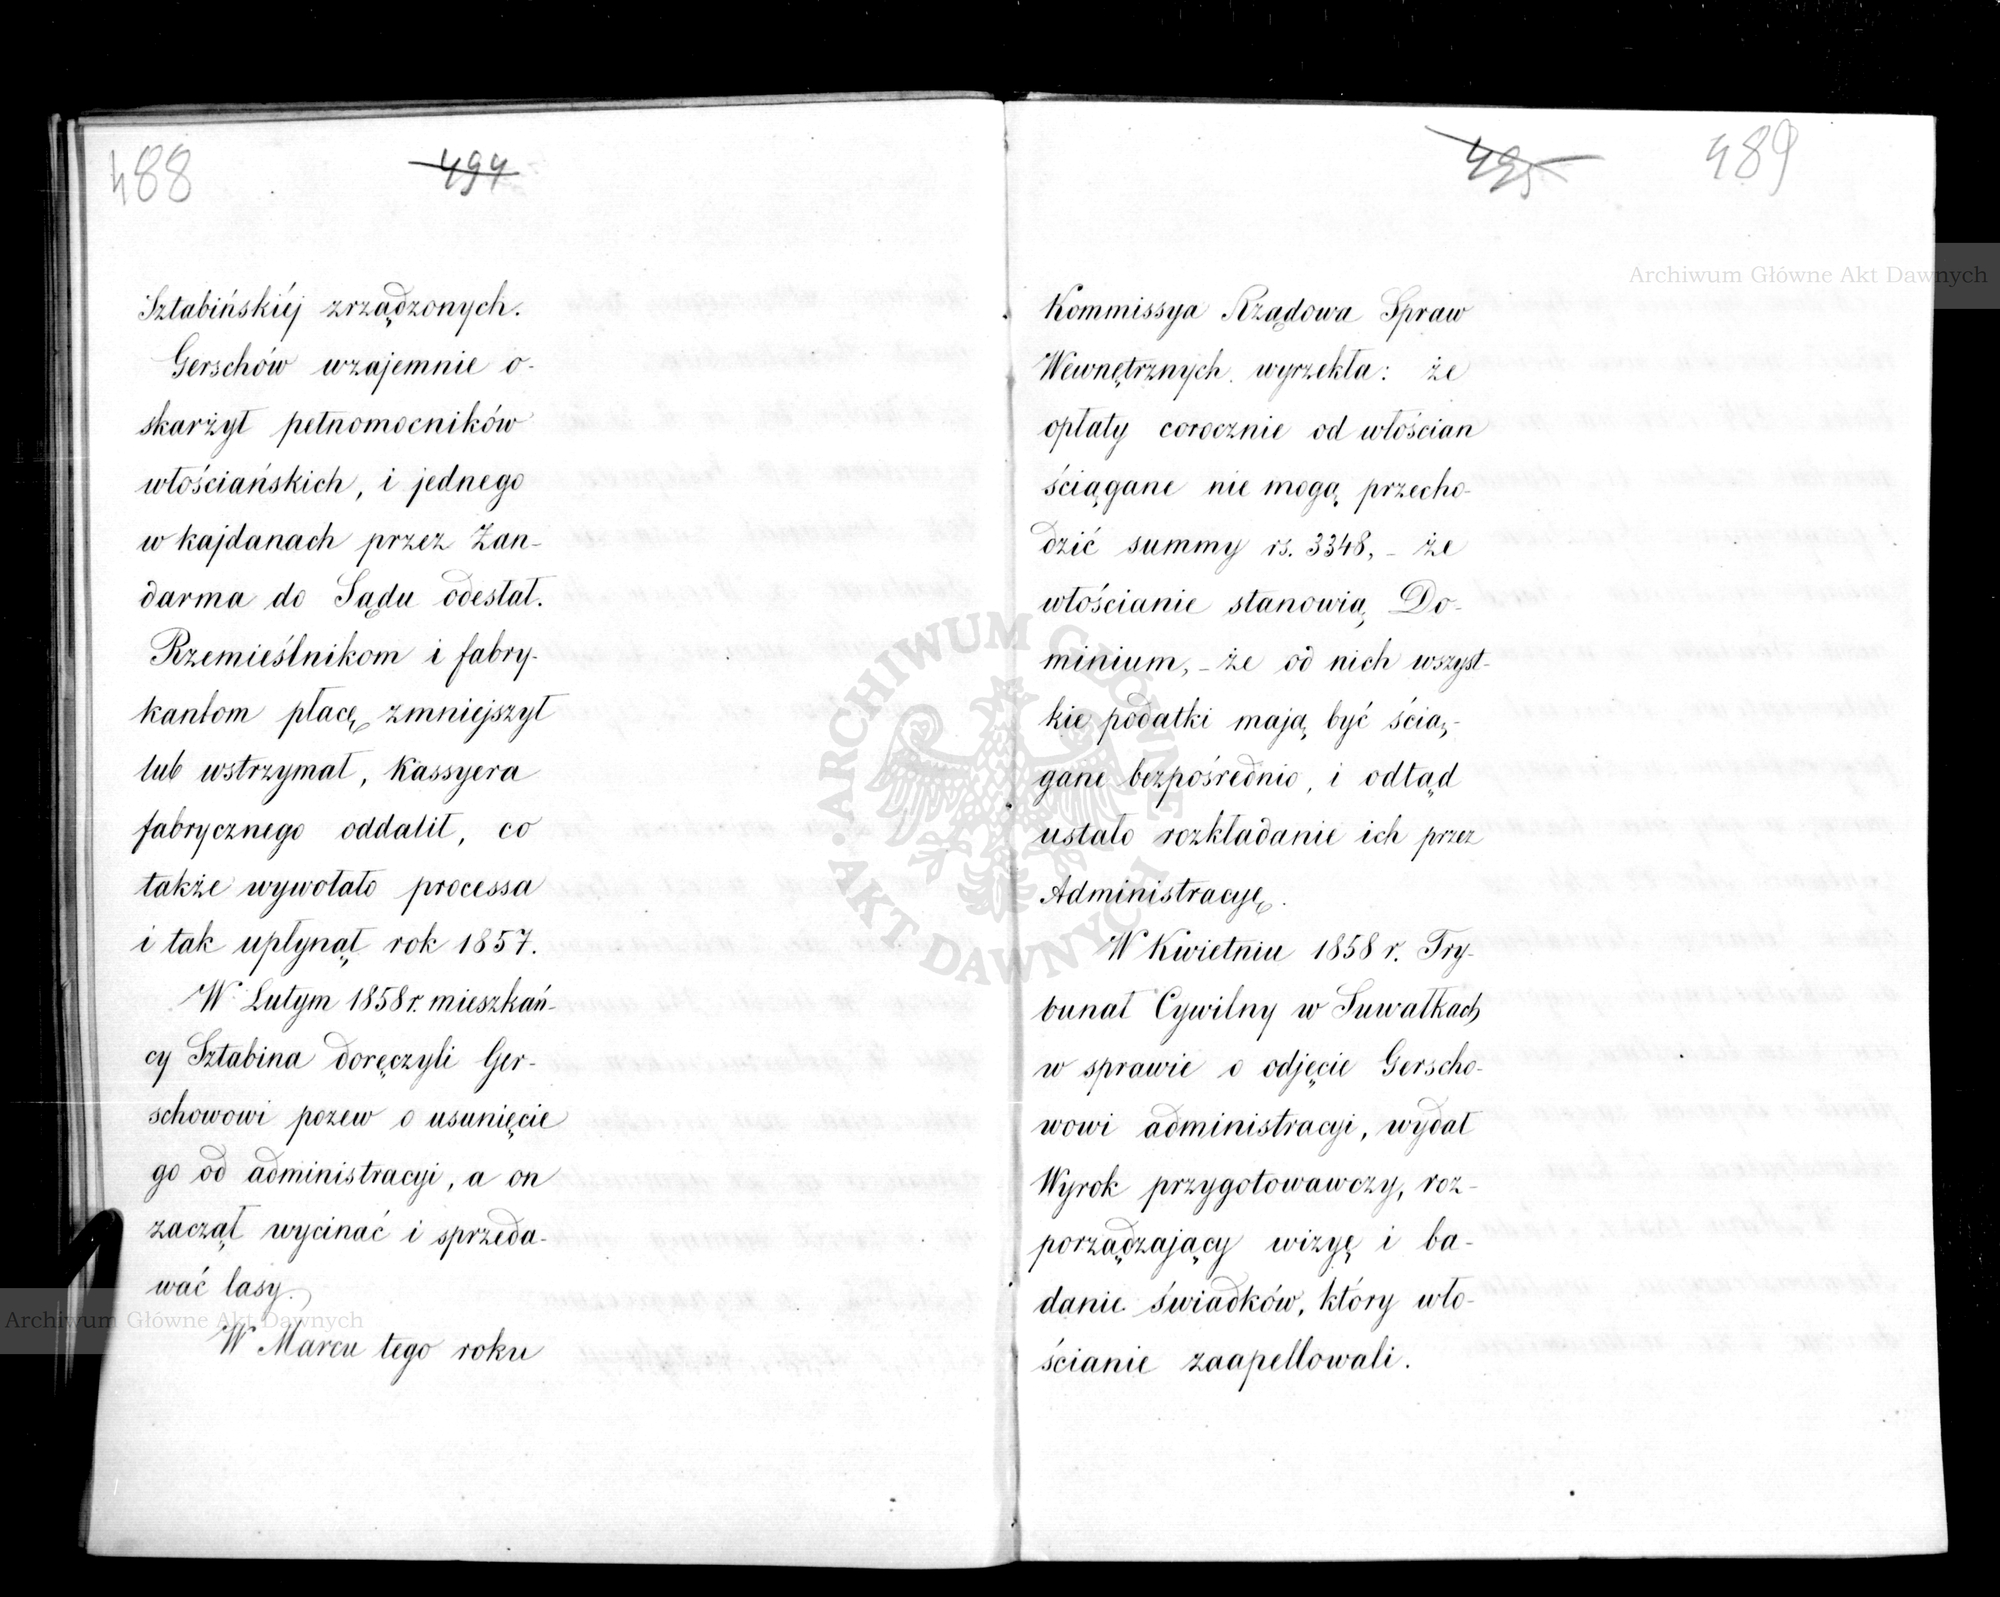 488
494
Sztabińskiéj zrządzonych.
Gerschów wzajemnie o-
skarżył pełnomocników
włościańskich, i jednego
w kajdanach przez Żan-
darma do Sądu odesłał.
Rzemieślnikom i fabry-
kantom płacę zmniejszył
lub wstrzymał, Kassyera
fabrycznego oddalił, co
także wywołało processa
i tak upłynął rok 1857.
W Lutym 1858 r. mieszkań-
cy Sztabina doręczyli Ger-
schowowi pozew o usunięcie
go od administracyi, a on
zaczął wycinać i sprzeda-
wać lasy.
W Marcu tego roku
495
489
Kommissya Rządowa Spraw
Wewnętrznych wyrzekła: że
opłaty corocznie od włościan
ściągane nie mogą przecho-
dzić summy rs. 3348, – że
włościanie stanowią Do-
minium, – że od nich wszyst-
kie podatki mają być ścią-
gane bezpośrednio, i odtąd
ustało rozkładanie ich przez
Administracyę.
W Kwietniu 1858 r. Try-
bunał Cywilny w Suwałkach
w sprawie o odjęcie Gerscho-
wowi administracyi, wydał
Wyrok przygotowawczy, roz-
porządzający wizyę i ba-
danie świadków, który wło-
ścianie zaapellowali.
Archiwum Główne Akt Dawnych
Archiwum Główne Akt Dawnych
ARCHIWUM GŁÓWNE AKT DAWNYCH